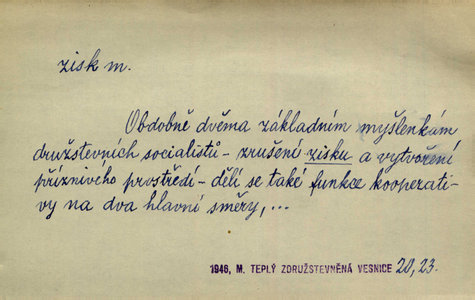 zisk m.
Obdobně dvěma základním myšlenkám
družstevních socialistů - zrušení zisku a vytvoření
příznivého prostředí - dělí se také funkce kooperati-
vy na dva hlavní směry, ...
1946, M. TEPLÝ ZDRUŽSTEVNĚNÁ VESNICE 20, 23.